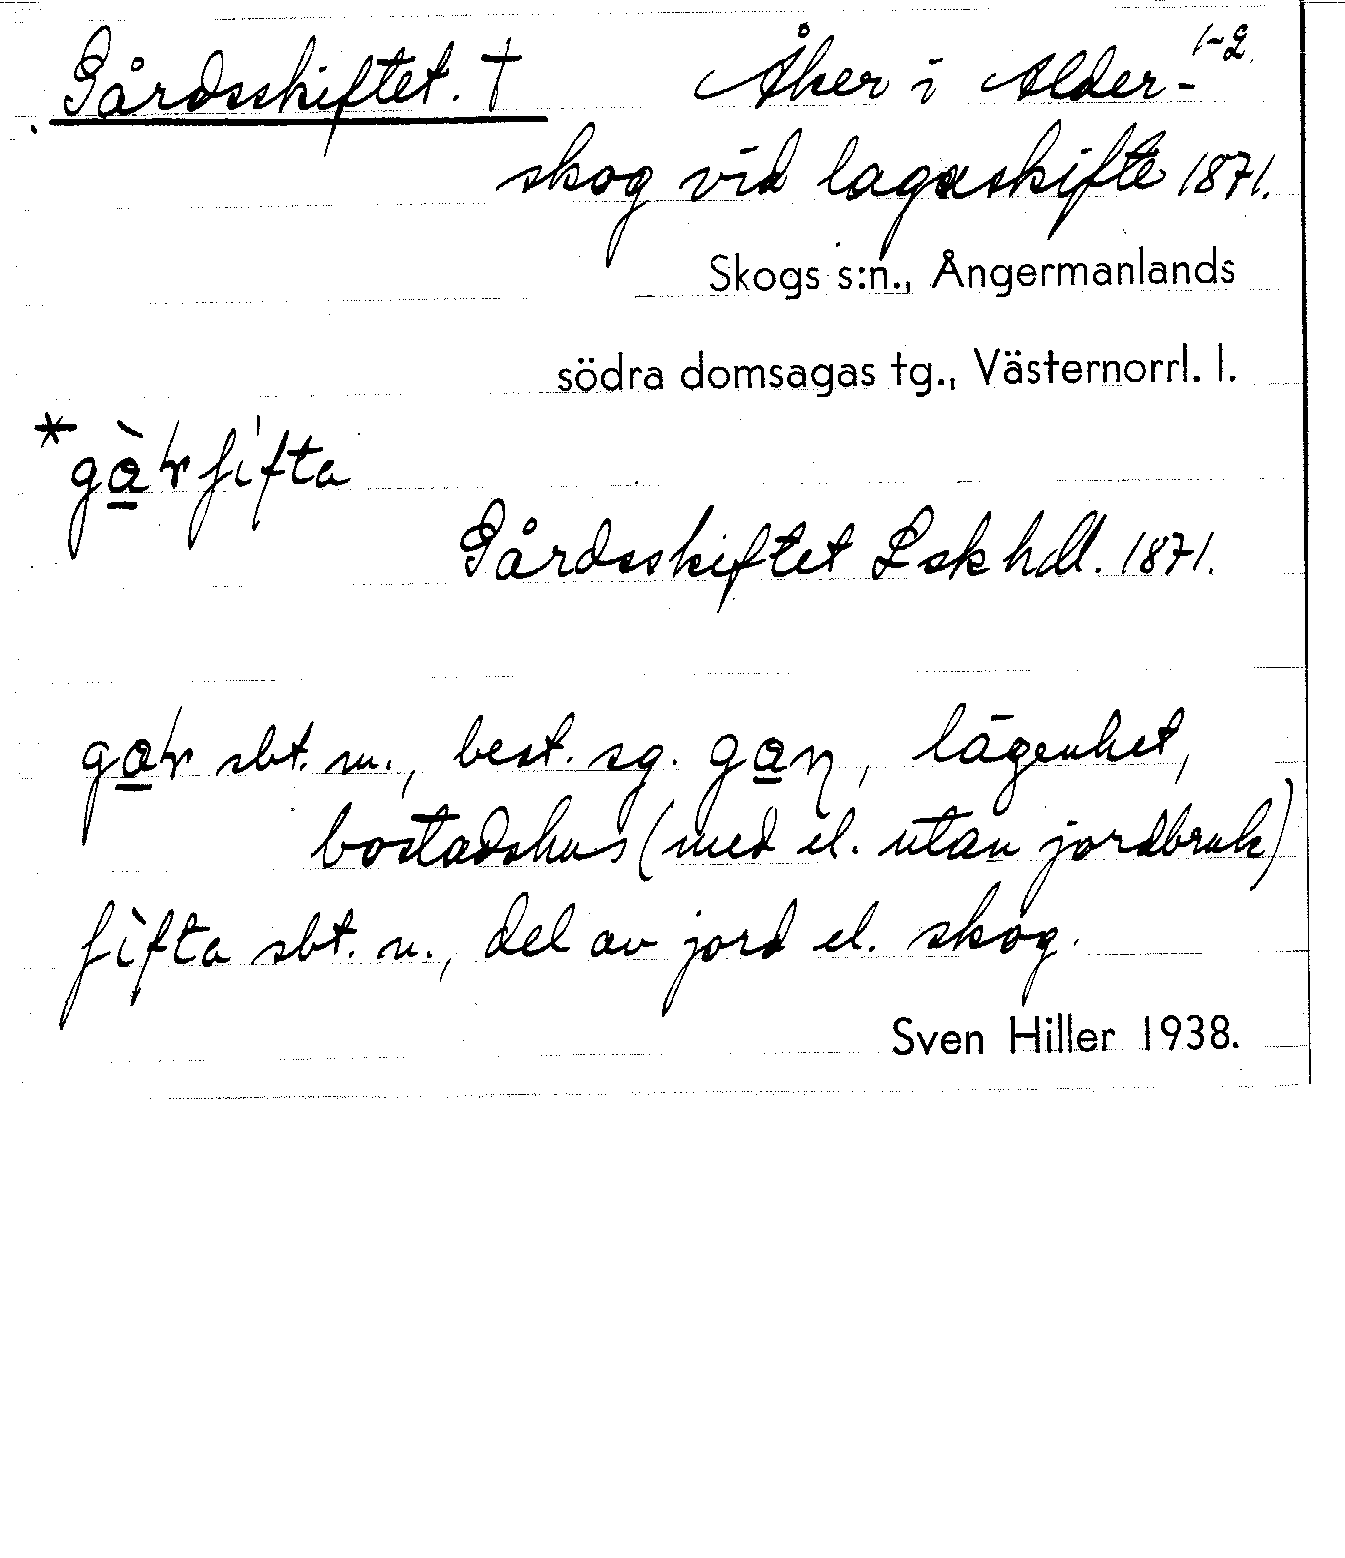 Gårdsskiftet. † Åker i Alder-1-2.
skog vid lagaskifte 1871.
Skogs s:n., Ångermanlands
södra domsagas tg., Västernorrl. l.
Gårdsskiftet Lskhdl. 1871.
sbt. m., best. sg. lägenhet,
bostadshus (med el. utan jordbruk)
sbt. n., del av jord el. skog.
Sven Hiller 1938.